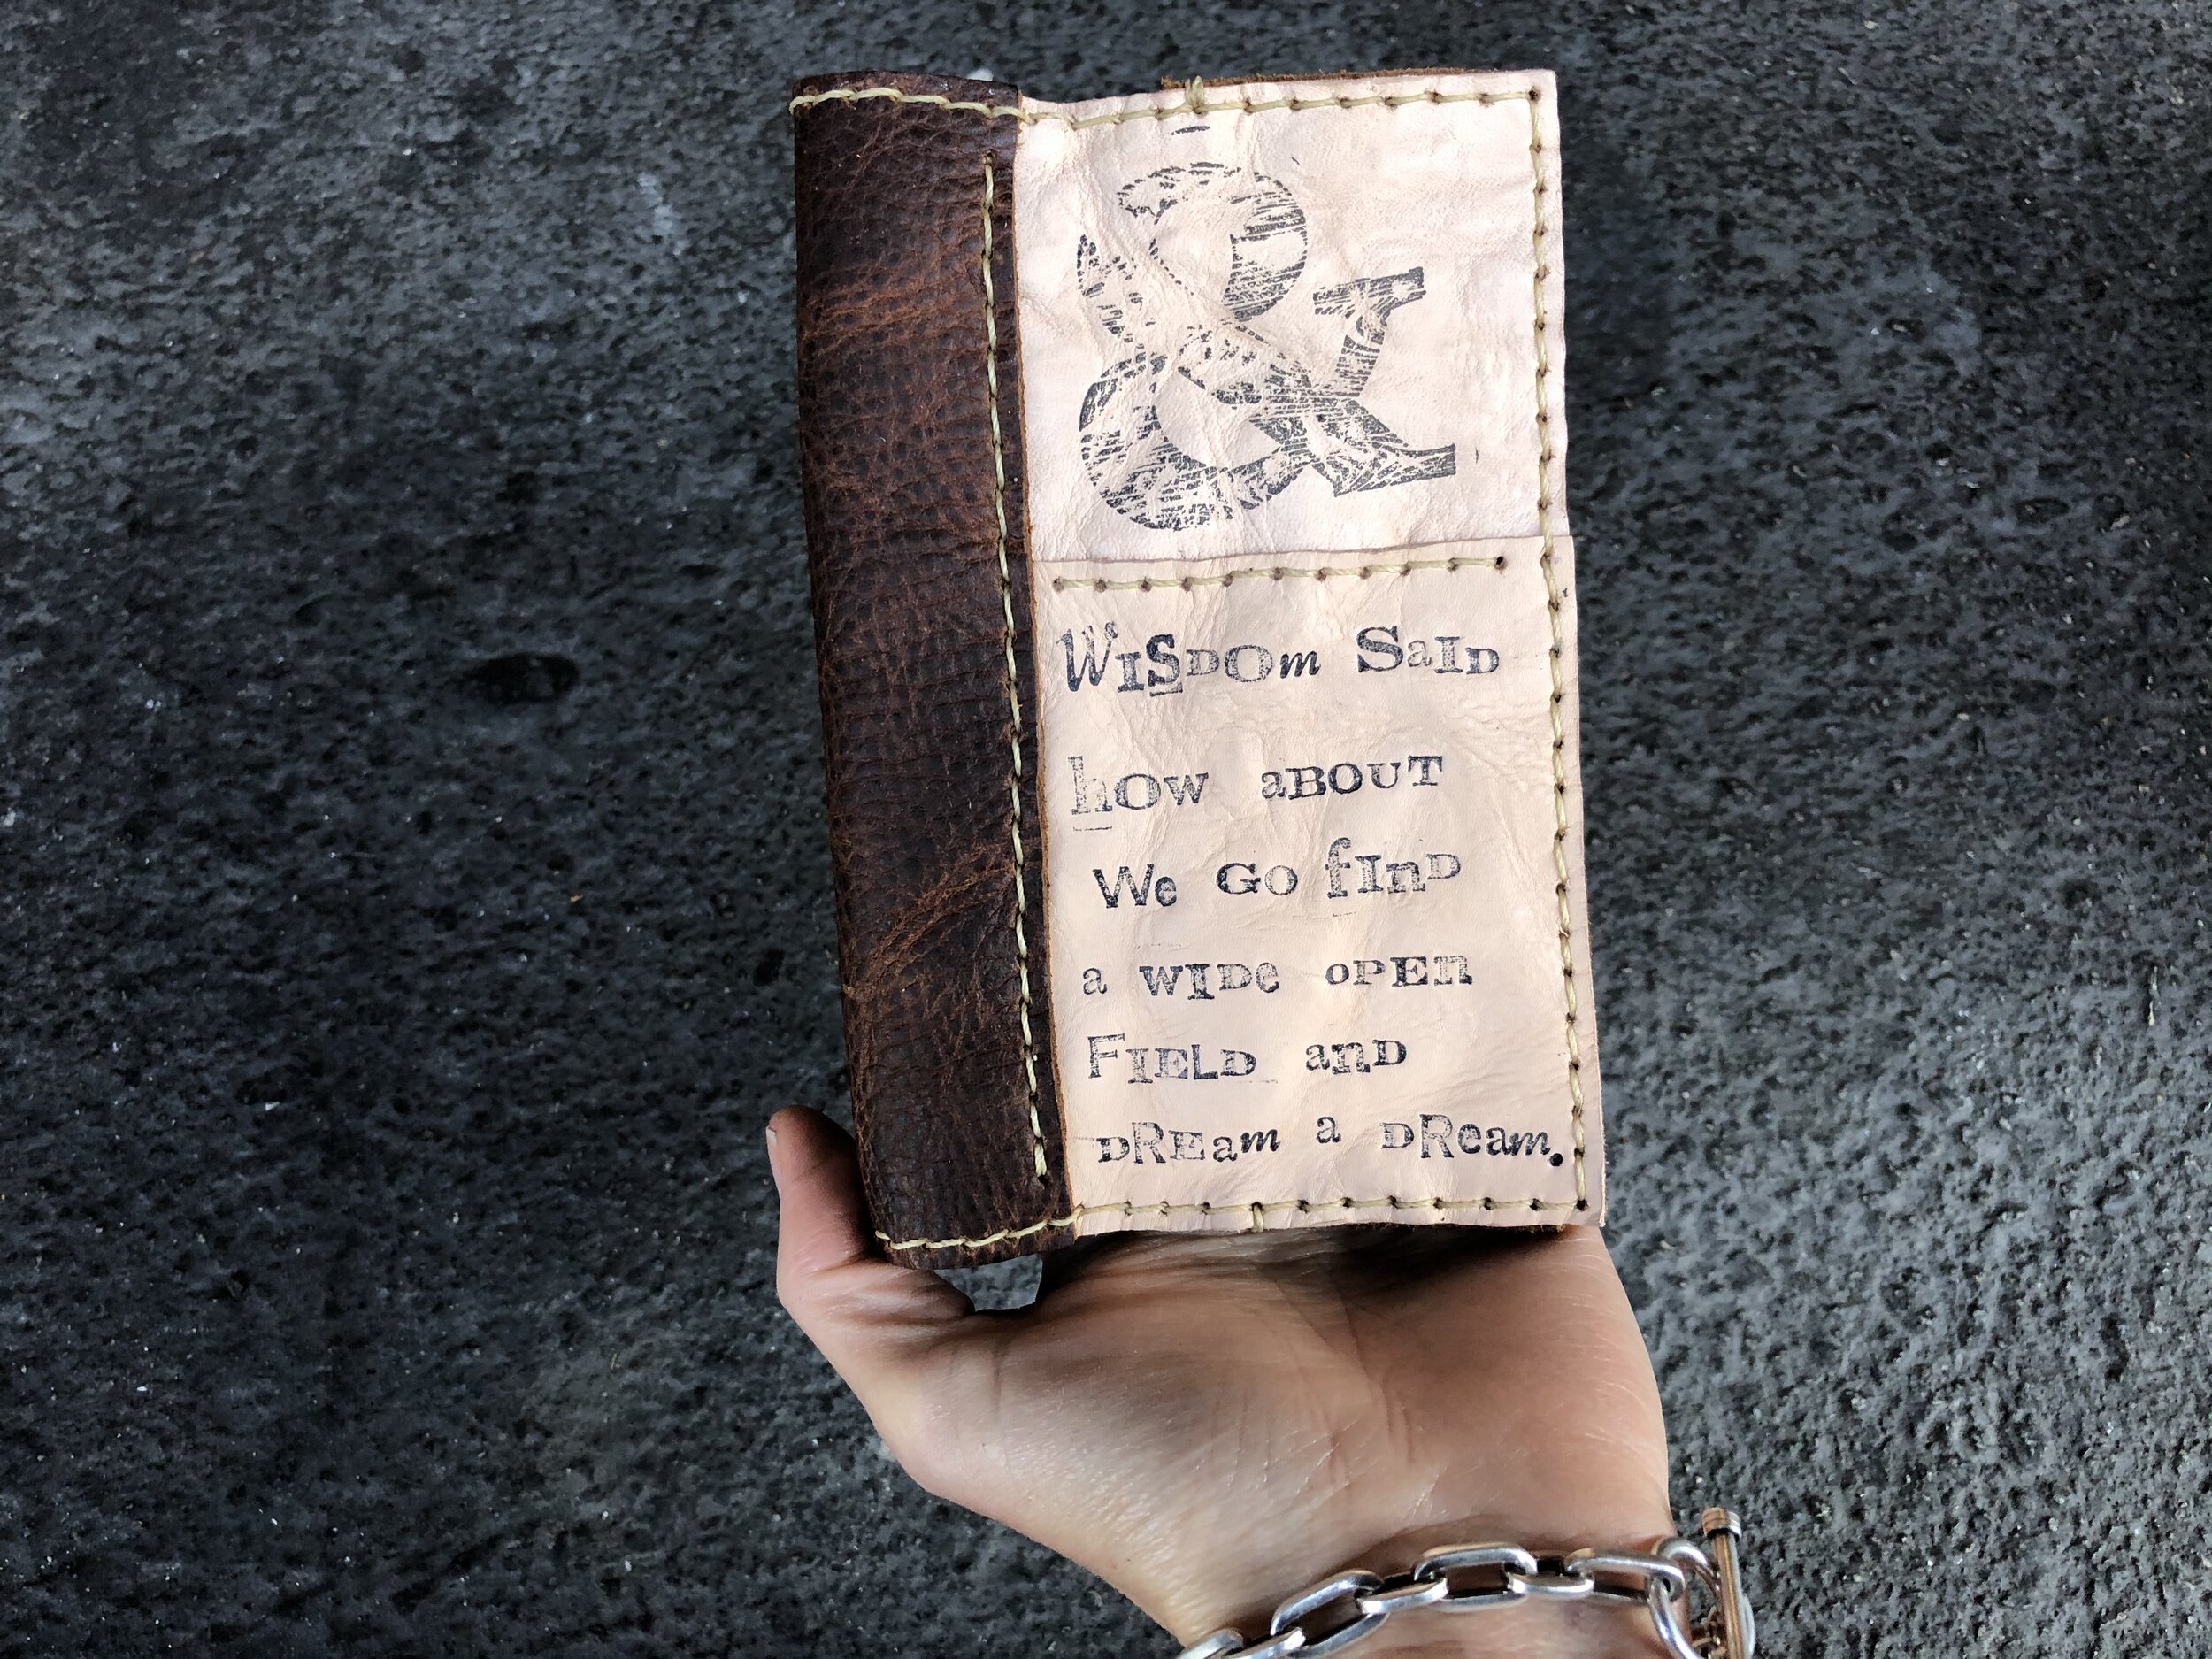 &
WISDOm SaID
hOW aBOUT
We GO fInD
a WIDe oPEn
FIELD anD
DREam a DReam.